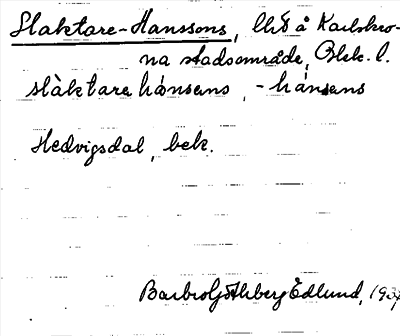 Slaktare-Hanssons, lht å Karlskro-
na stadsområde, Blek. l.
slàktare hánsens, -hánsens
Hedvigsdal, bek.
Barbro Göthberg Edlund, 193